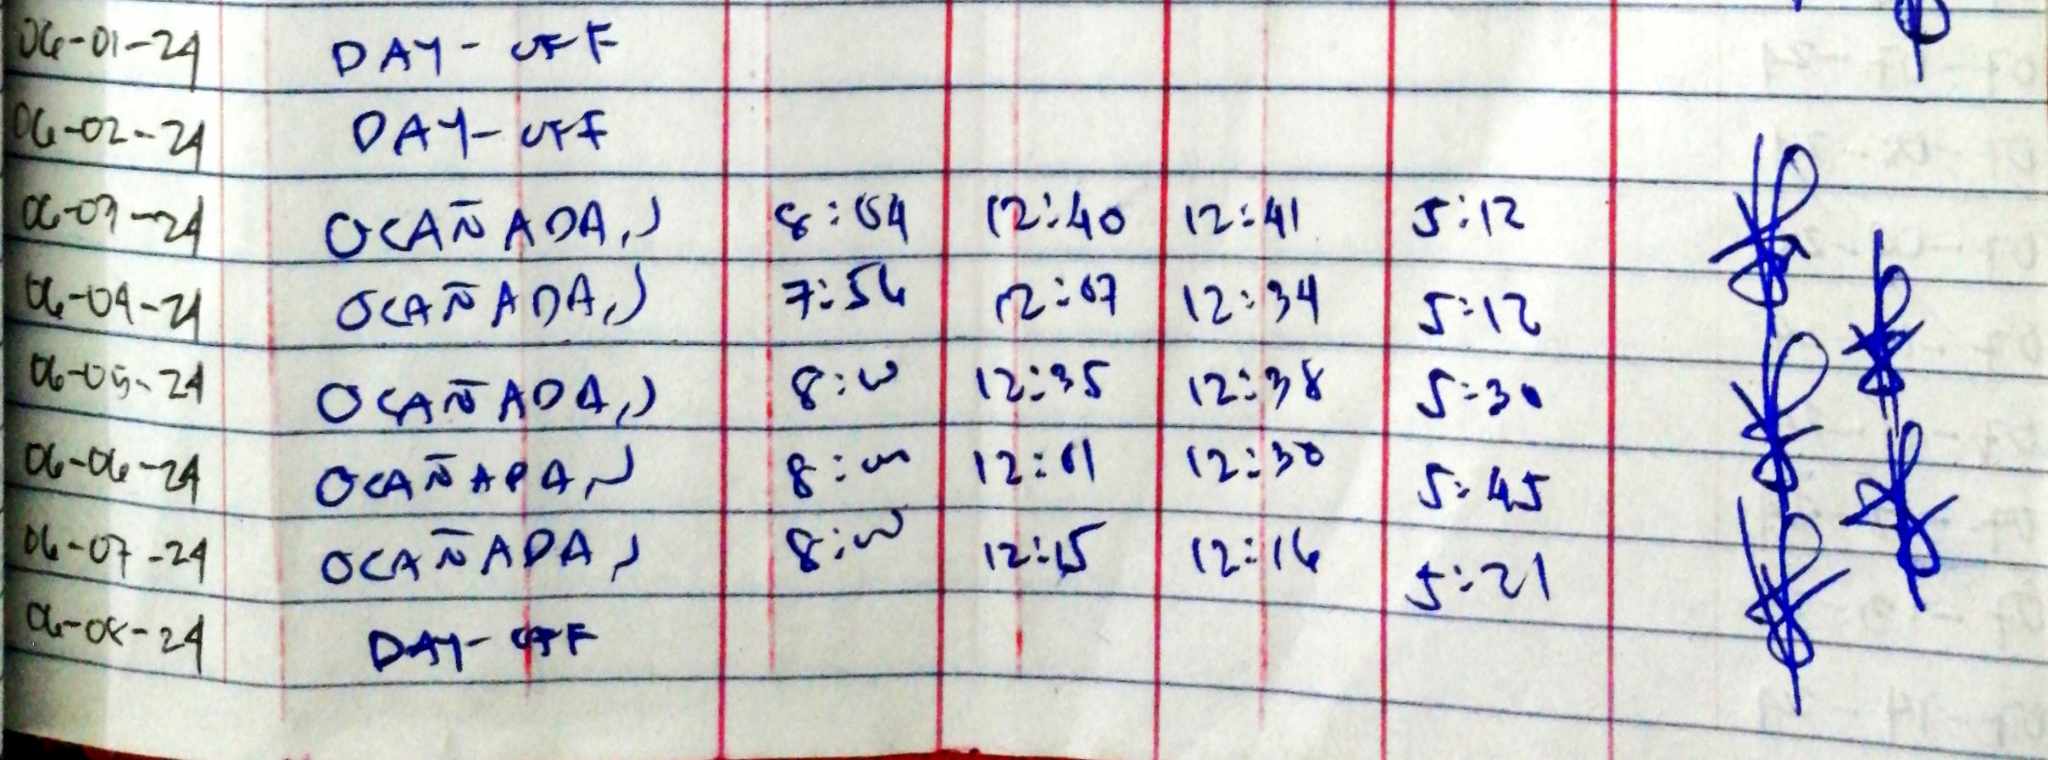 06-01-24 DAY-OFF
06-02-24 DAY-OFF
06-03-24 OCAÑADA, J 8:04 12:40 12:41 5:12
06-04-24 OCAÑADA, J 7:56 12:07 12:34 5:12
06-05-24 OCAÑADA, J 8:00 12:35 12:38 5:30
06-06-24 OCAÑADA, J 8:00 12:01 12:30 5:45
06-07-24 OCAÑADA, J 8:00 12:15 12:16 5:21
06-08-24 DAY-OFF